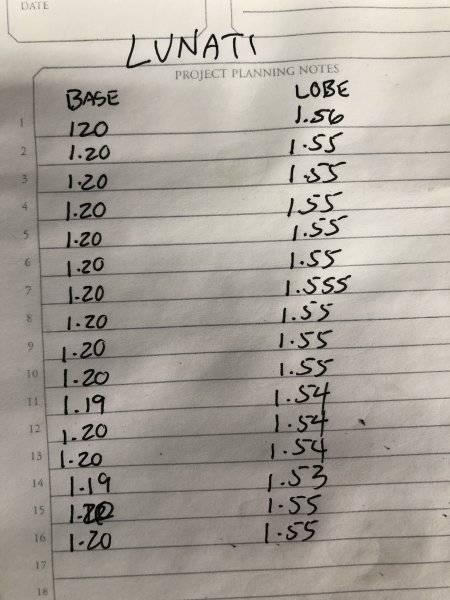 DATE
LUNATI
PROJECT PLANNING NOTES
BASE LOBE
1 120 1.56
2 1.20 1.55
3 1.20 1.55
4 1.20 1.55
5 1.20 1.55
6 1.20 1.55
7 1.20 1.555
8 1.20 1.55
9 1.20 1.55
10 1.20 1.55
11 1.19 1.54
12 1.20 1.54
13 1.20 1.54
14 1.19 1.53
15 1.55
16 1.20 1.55
17
18